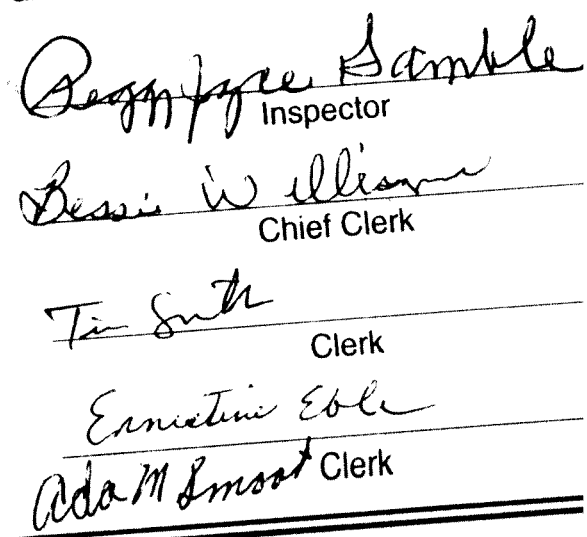 Peggy Joyce Gamble
Inspector
Bessie Williams
Chief Clerk
Tim Smith
Clerk
Ernestine Eble
Clerk
Ada M Smoot